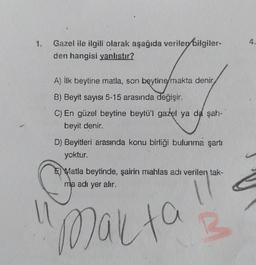 1. Gazel ile ilgili olarak aşağıda verilen bilgiler-
den hangisi yanlıştır?
A) İlk beytine matla, son beytine makta denir.
B) Beyit sayısı 5-15 arasında değişir.
C) En güzel beytine beytü'l gazel ya da şah-
beyit denir.
D) Beyitleri arasında konu birliği bulunma şartı
yoktur.
E) Matla beytinde, şairin mahlas adı verilen tak-
ma adı yer alır.
"Makta"
4.